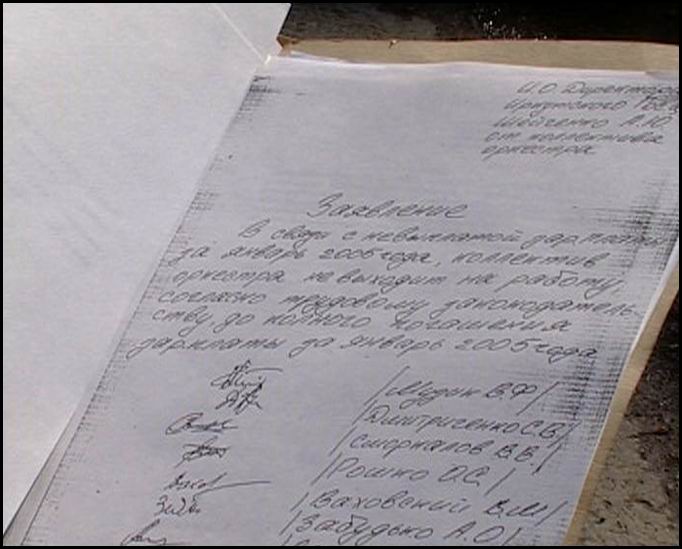 И.О. Директора
Иркутского
Шейченко А.Ю.
от коллектива
оркестра
Заявление
В связи с невыплатой зарплаты
за январь 2005 года, коллектив
оркестра не выходит на работу,
согласно трудовому законодатель-
ству до полного погашения
зарплаты за январь 2005 года
/Мудин В.Ф/
/Дмитриченко С.В/
/Сморкалов В.В./
/Рошко О.С./
/Ваховский В.М/
/Забудько А.О/